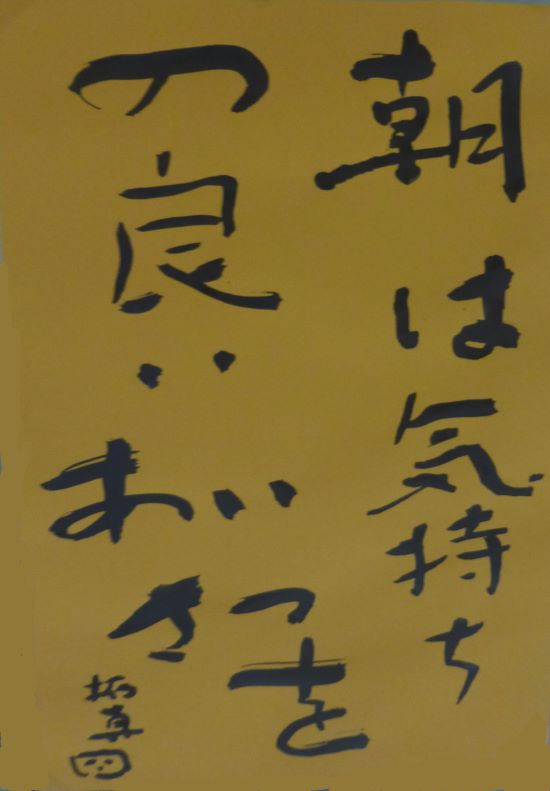 朝は気持ち
の良い
あいさつを